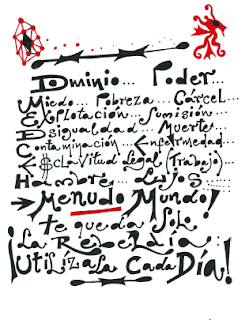 Dominio... Poder...
Miedo... Pobreza... Cárcel...
Explotación... Sumisión...
Desigualdad... Muertes
Contaminación... Enfermedad...
$sclavitud Legal (Trabajo)...
Hambre... Lujos...
¡Menudo Mundo!
te queda Sólo
¡La Rebeldía:
¡Utilízala Cada Día!